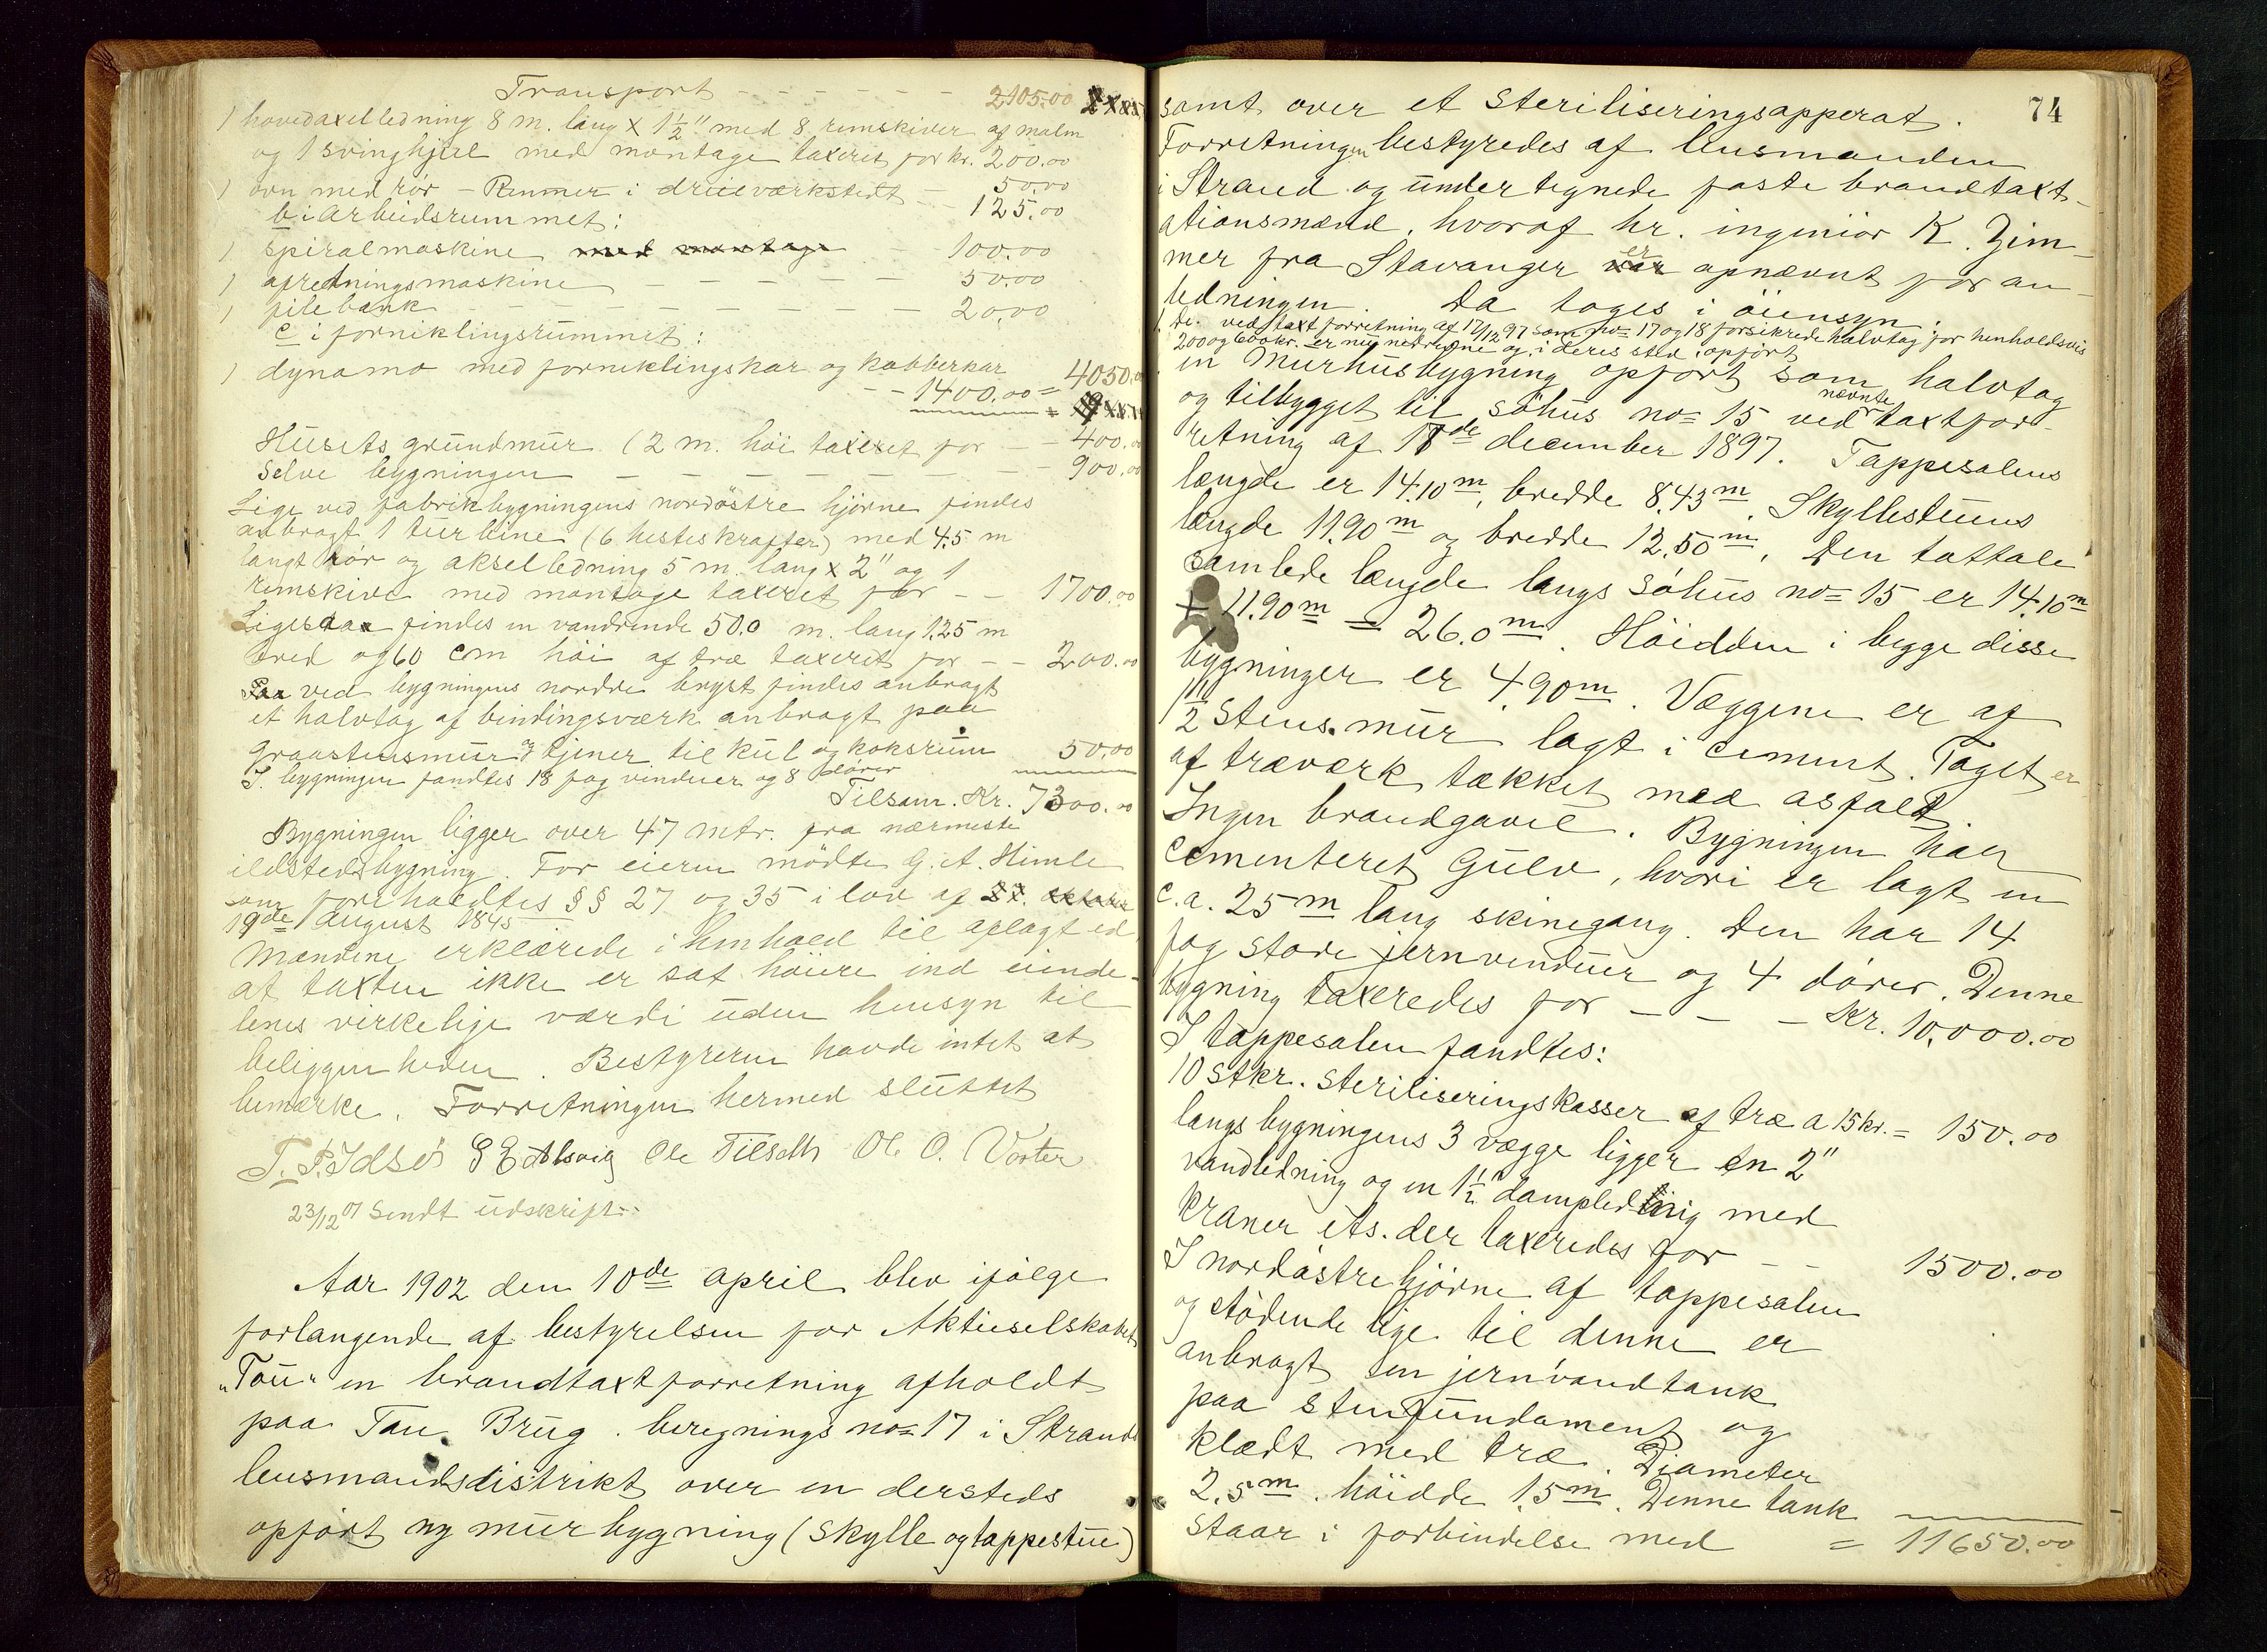 Transport - - - - - - 2105.00
1 hovedaxelledning 8 m. lang x 1 1/2" med 8 remskiver af malm
og 1 svinghjul med montage taxeret for kr. 200.00
1 ovn med rör - Remmer i dreieværkstedt - 50.00
125.00
b i arbeidsrummet:
1 spiralmaskine med montage - 100.00
1 afretningsmaskine - - - - - 50.00
1 filebank - - - - - - 20.00
c i forniklingsrummet:
1 dynamo med forniklingskar og kobberkar 4050.00
- - 1400.00 =
Husets grundmur (2 m. høi taxeret for - - 400.00
Selve bygningen - - - - - - - - 900.00
Lige ved fabrikbygningens nordöstre hjörne findes
anbragt 1 turbine (6 hestes krafter) med 4.5 m
langt rör og akselledning 5 m. lang x 2" og 1
remskive med montage taxeret for - - 1700.00
Ligesaa findes en vandrende 50.0 m. lang 1.25 m
bred og 60 cm höi af træ taxeret for - - 200.00
ved bygningens nordre bryst findes anbragt
et halvtag af bindingsværk anbragt paa
graastensmur og tjener til kul og koksrum 50.00
I bygningen fandtes 18 fag vinduer og 8 dörer
Tilsam. Kr. 7300.00
Bygningen ligger over 47 mtr. fra nærmeste
ildstedsbygning. For eieren mödte G. A. Himle
som foreholdtes §§ 27 og 35 i lov af
19de august 1845
Mændene erklærede i henhold til aflagt ed,
at taxten ikke er sat höiere ind eiende-
lenes virkelige værdi uden hensyn til
beliggenheden. Bestyreren havde intet at
bemærke. Forretningen hermed sluttet
T. P. Idsö Ole O. Voster
23/12 01 Sendt udskrift.
Aar 1902 den 10de april blev ifölge
forlangende af bestyrelsen for Aktieselskabet
"Tou" en brandtaxtforretning afholdt
paa Tau Brug. beregnings no= 17 i Strands
lensmandsdistrikt over en dersteds
opfört ny murbygning (skylle og tappestue)
74
samt over et Steriliseringsapperat.
Forretningen bestyredes af lensmanden
i Strand og undertegnede faste brandtaxt-
ationsmænd, hvoraf hr. ingeniör K. Zim-
mer fra Stavanger er opnævnt for an-
ledningen. Da toges i öiensyn:
1. De ved taxtforretning af 17/12 97 som no= 17 og 18 forsikrede halvtag for henholdsvis
200 og 600 kr. er nu nedrevne og i deres sted opfört
en Murhusbygning opfört som halvtag
og tilbygget til söhus no= 15 ved nævnte taxtfor-
retning af 17de december 1897. Tappesalens
længde er 14.10 m, bredde 8.43 m. Skyllestuens
længde 11.90 m og bredde 12.50 m. Den tottale
samlede længde langs söhus no= 15 er 14.10 m
+ 11.90 m = 26.0 m. Höidden i begge disse
bygninger er 4.90 m. Væggene er af
1 1/2 Stens mur lagt i cement. Taget er
af træværk tækket med asfalt.
Ingen brandgavl. Bygningen har
cementeret gulv, hvori er lagt en
c.a. 25 m lang skinegang. Den har 14
fag store jernvinduer og 4 dörer. Denne
bygning taxeredes for - - - Kr. 10.000.00
I tappesalen fandtes:
10 stkr. steriliseringskasser af træ a 15 kr. = 150.00
langs bygningens 3 vægge ligger en 2"
vandledning og en 1 1/2" dampledning med
kraner ets. der taxeredes for - - 1500.00
I nordöstre hjörne af tappesalen
og stödende lige til denne er
anbragt en jernvandtank
paa stenfundament og
klædt med træ. Diameter
2.5 m. höidde 1.5 m. Denne tank
staar i forbindelse med = 11650.00